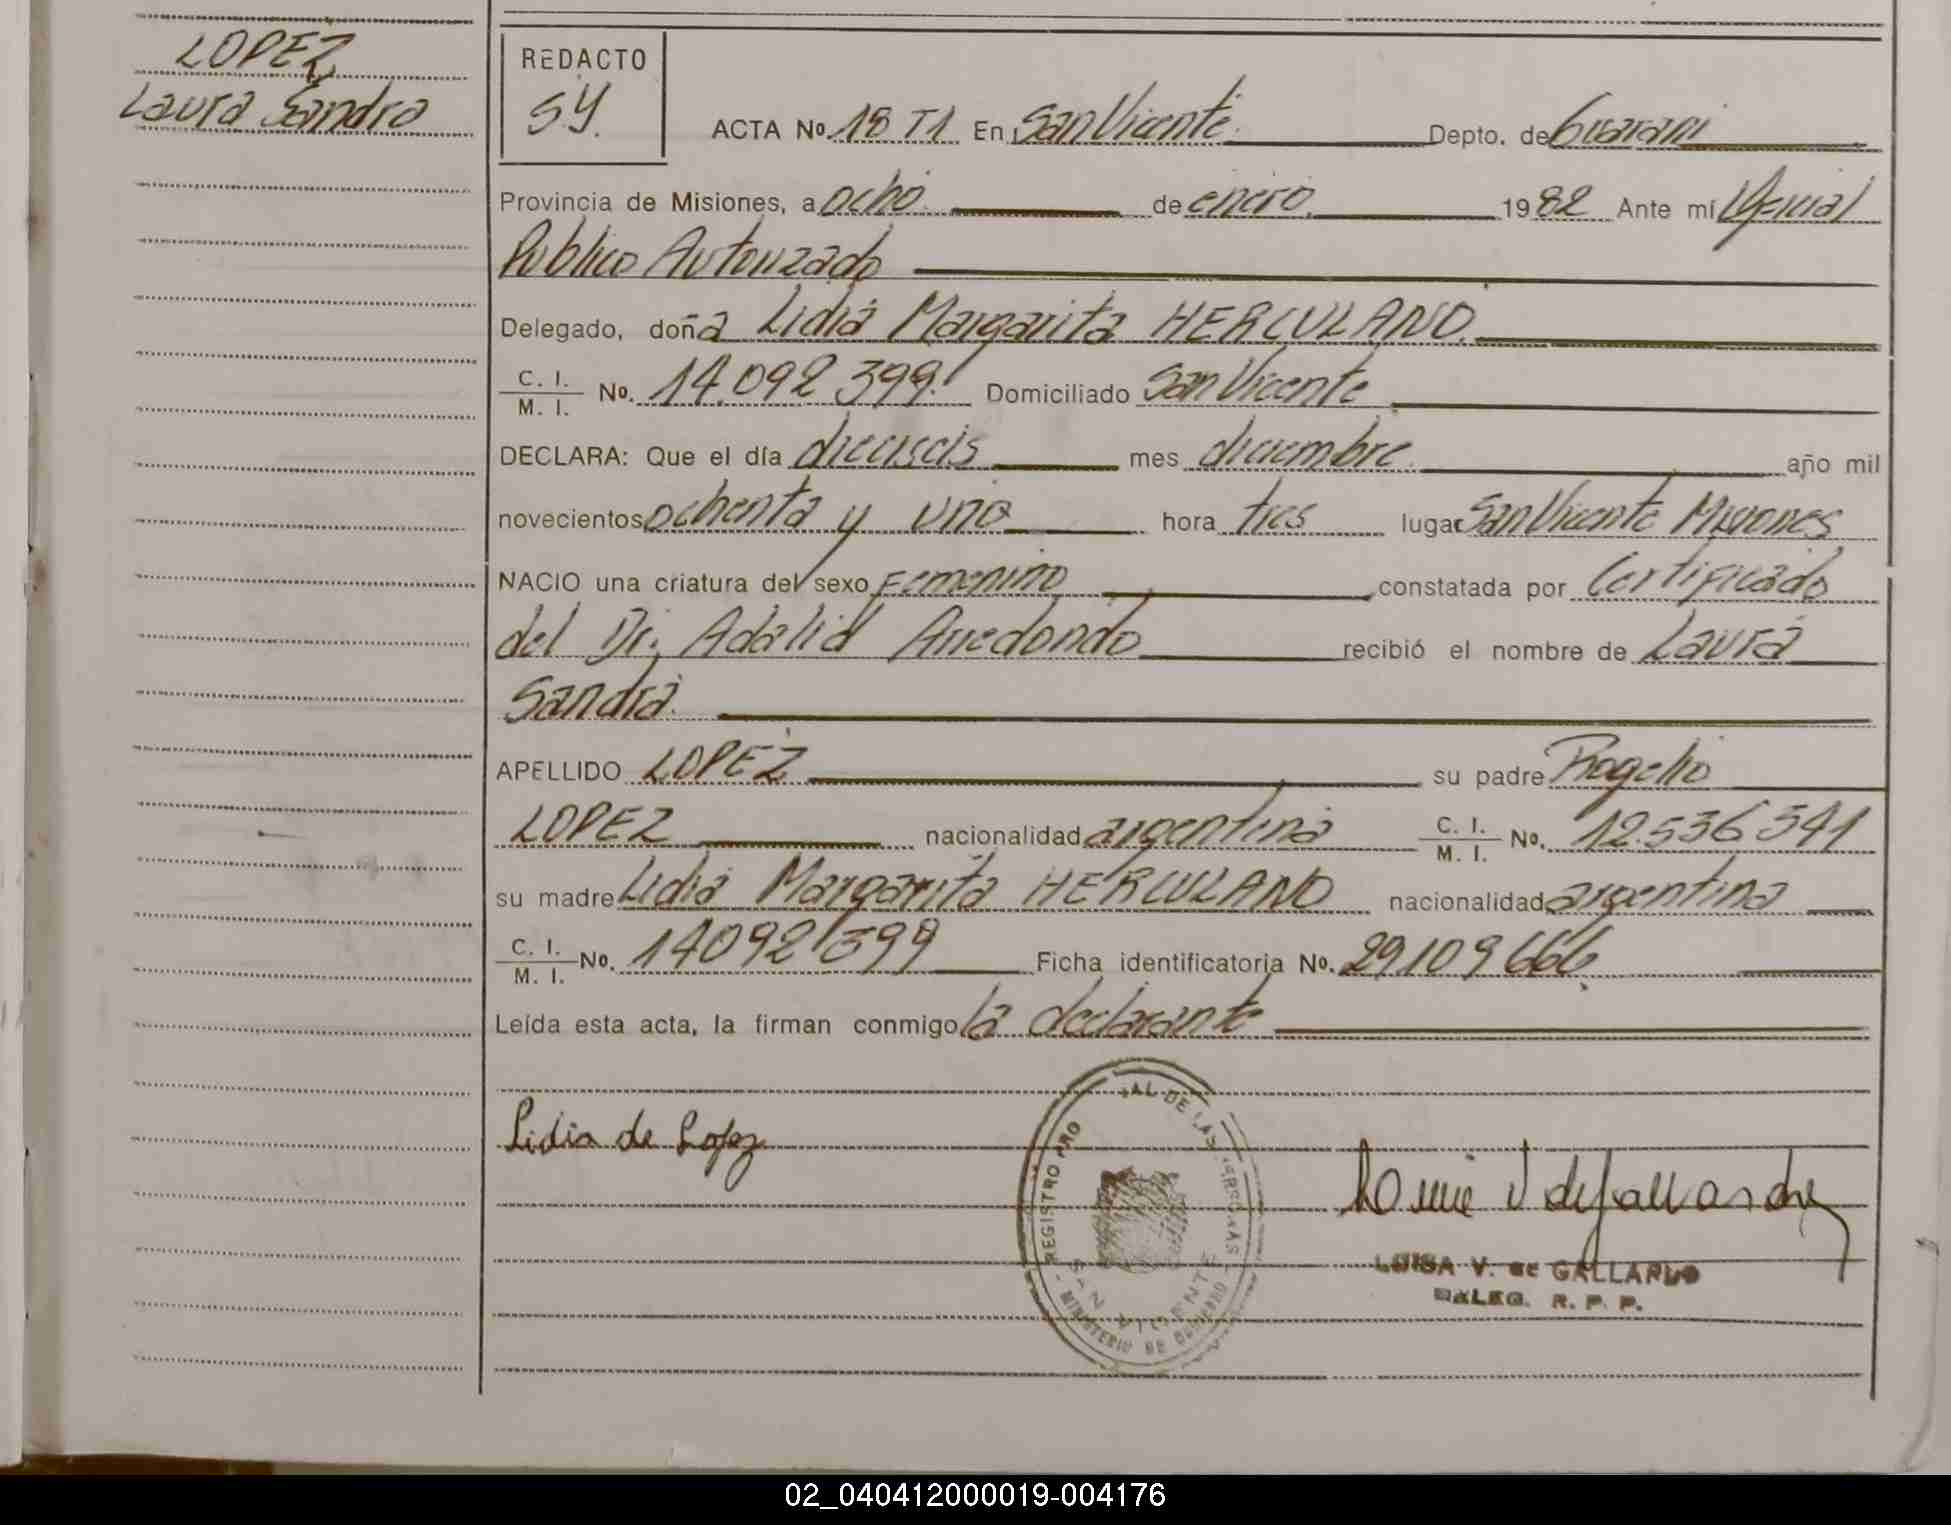 LOPEZ
Laura Sandra
REDACTO
S.Y.
ACTA No. 18 T1 En San Vicente. Depto. de Guarani
Provincia de Misiones, a ocho. de enero. 1982 Ante mí Oficial
Publico Autorizado
Delegado, doña Lidia Margarita HERCULANO.
C. I.
M. I. No. 14.092 399. Domiciliado San Vicente
DECLARA: Que el día dieciseis mes diciembre. año mil
novecientos ochenta y uno hora tres lugar San Vicente Misiones
NACIO una criatura del sexo Femenino constatada por Certificado
del Dr. Adalid Arredondo recibió el nombre de Laura
Sandra.
APELLIDO LOPEZ su padre Rogelio
LOPEZ nacionalidad argentina C. I.
M. I. No. 12.536 541
su madre Lidia Margarita HERCULANO nacionalidad argentina
C. I.
M. I. No. 14092399 Ficha identificatoria No. 29.109 666
Leída esta acta, la firman conmigo la declarante
Lidia de Lopez
REGISTRO PRO AL DE LAS PERSONAS
SAN VICENTE
MINISTERIO DE GOBIERNO
LUISA V. de GALLARDO
DELEG. R. P. P.
02_040412000019-004176